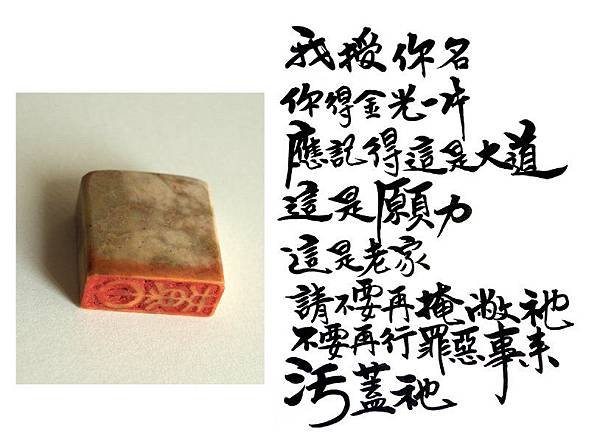 我授你名
你得金光一片
應記得這是大道
這是願力
這是老家
請不要再掩敝祂
不要再行罪惡事來
污蓋祂